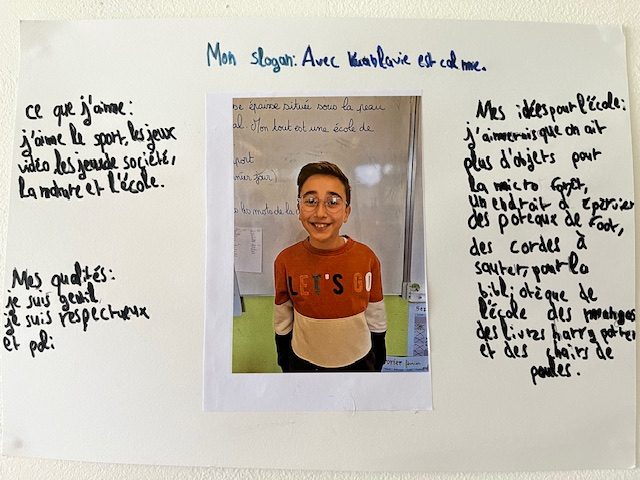 Mon slogan: Avec la vie est calme.
ce que j'aime:
j'aime le sport, les jeux
vidéo les jeux de société,
la nature et l'école.
Mes qualités:
je suis gentil
je suis respectueux
et poli
se épaisse située sous la peau
al. Mon tout est une école de
port
LET'S GO
Mes idées pour l'école:
j'aimerais que on ait
plus d'objets pour
la micro
un endroit d'
des poteaux de foot,
des cordes à
sauter, pour la
bibliotèque de
l'école des mangas
des livres harry potter
et des de
poules.